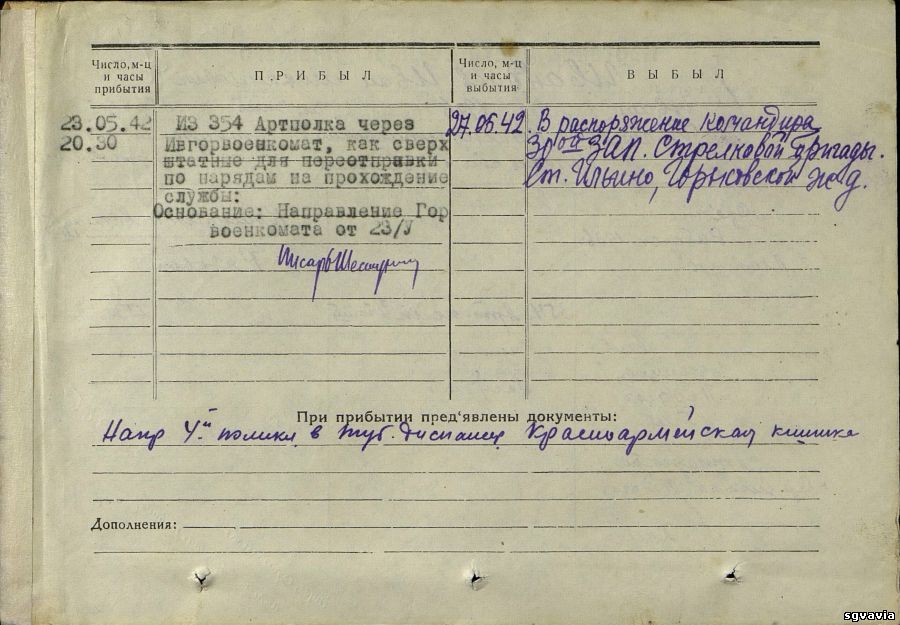 Число, м-ц
и часы
прибытия
ПРИБЫЛ
Число, м-ц
и часы
выбытия
ВЫБЫЛ
23.05.42
20.30
ИЗ 354 Артполка через
Ивгорвоенкомат, как сверх
штатные для переотправки
по нарядам на прохождение
службы:
Основание: Направление Гор
военкомата от 23/У
Писарь
27.05.42.
В распоряжение командира
30ой зап. Стрелковой бригады.
ст. Ильино, Горьковской жд.
При прибытии пред'явлены документы:
Напр 4й полики в туб. диспансер Красноармейская книжка
Дополнения:
sgvavia